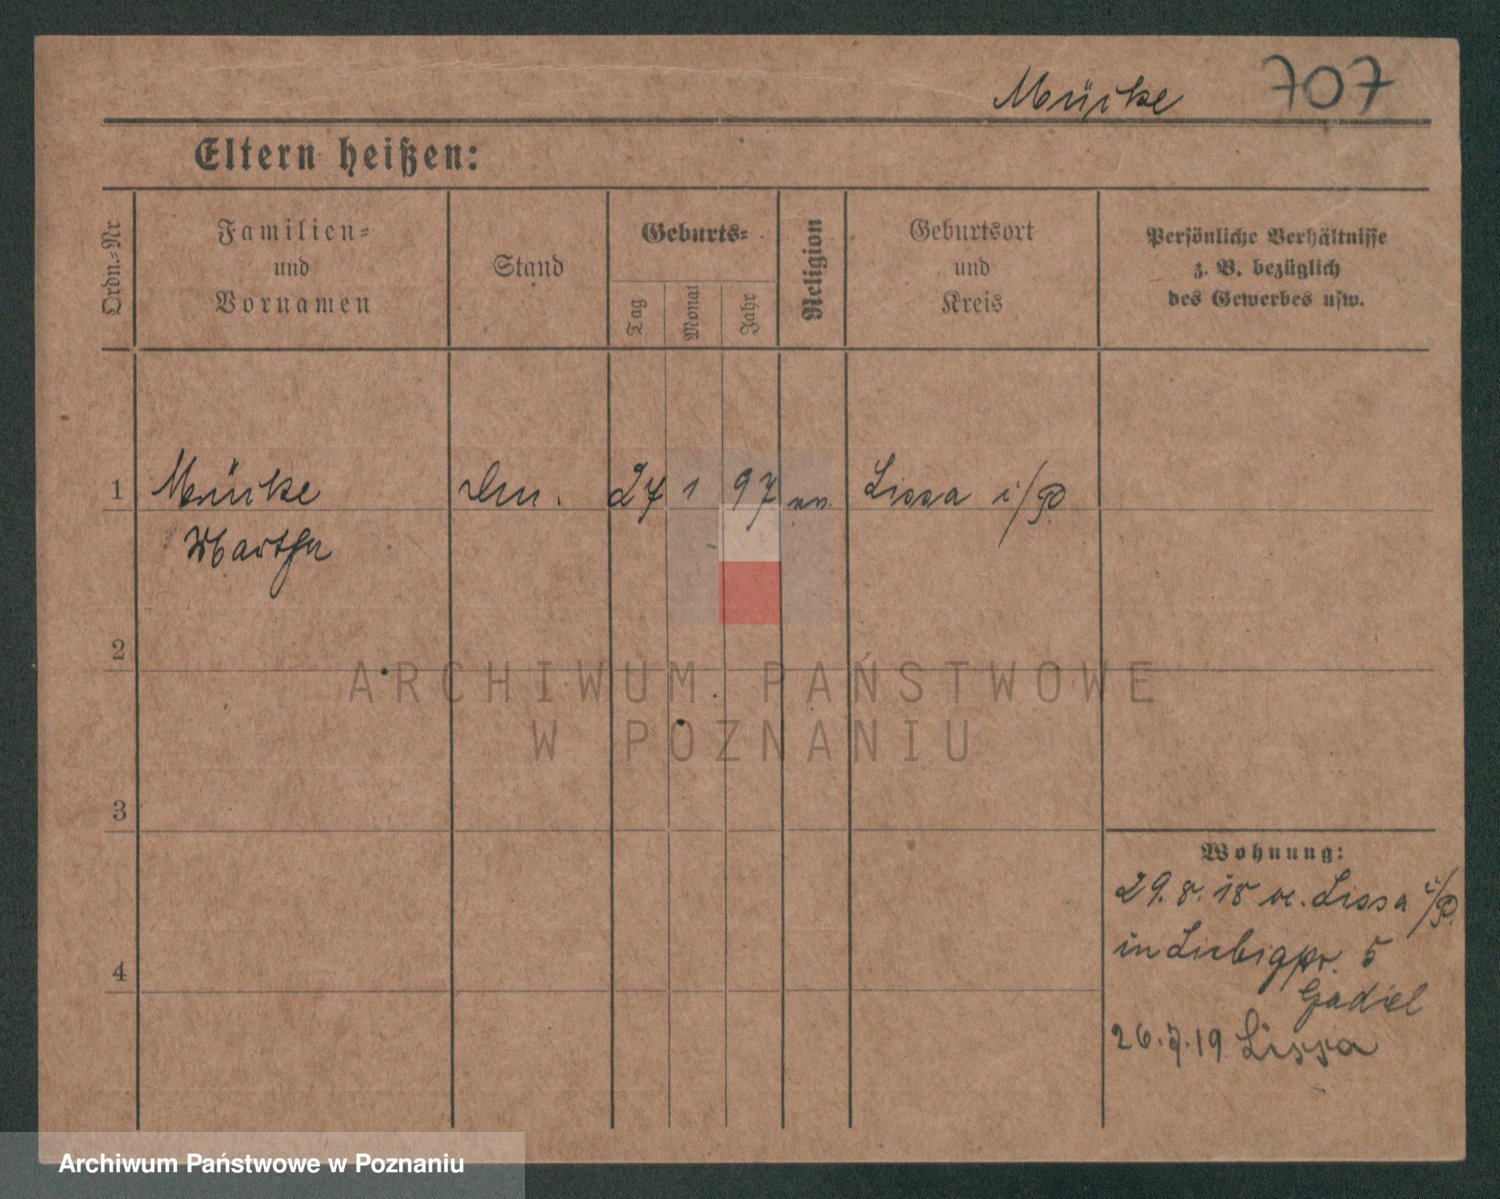 Mücke 707
Eltern heißen:
Ordn.-Nr
Familien-
und
Vornamen
Stand
Geburts-
Tag
Monat
Jahr
Religion
Geburtsort
und
Kreis
Persönliche Verhältnisse
z. B. bezüglich
des Gewerbes usw.
1 Mücke 27 1 97 Lissa i/P.
Martha
2
3
4
Wohnung:
29. 8. 18 v. Lissa i/P.
in 5
Gadiel
26.7.19 Lissa
ARCHIWUM PAŃSTWOWE
W POZNANIU
Archiwum Państwowe w Poznaniu